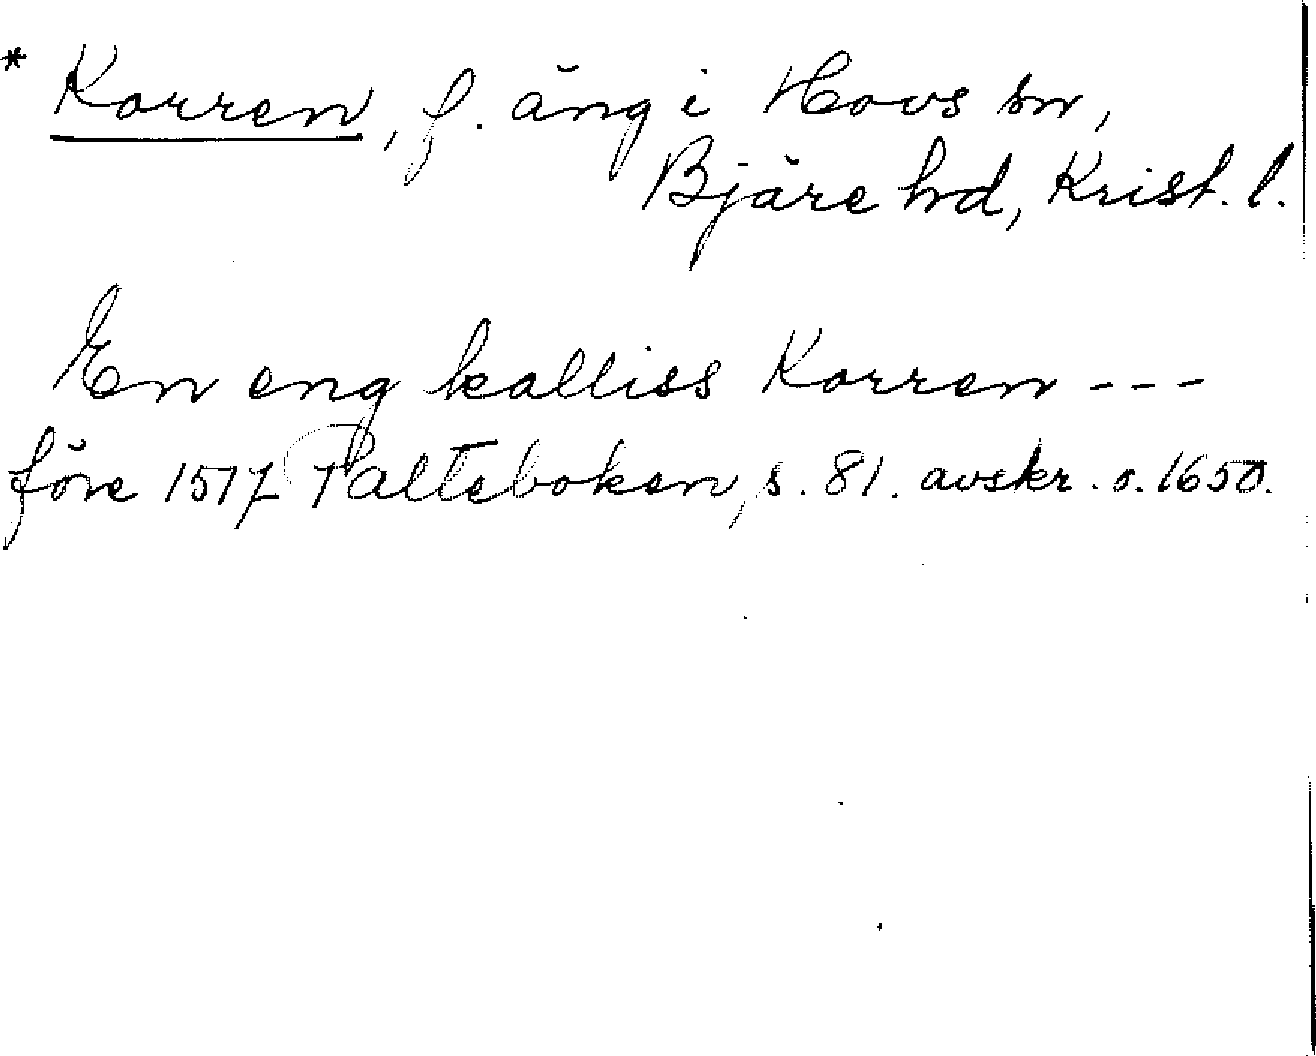 * Korren, f. äng i Hovs sn,
Bjäre hd, Krist. l.
En eng kalliss Korren ---
före 1517 Palteboken, s. 81. avskr. o. 1650.